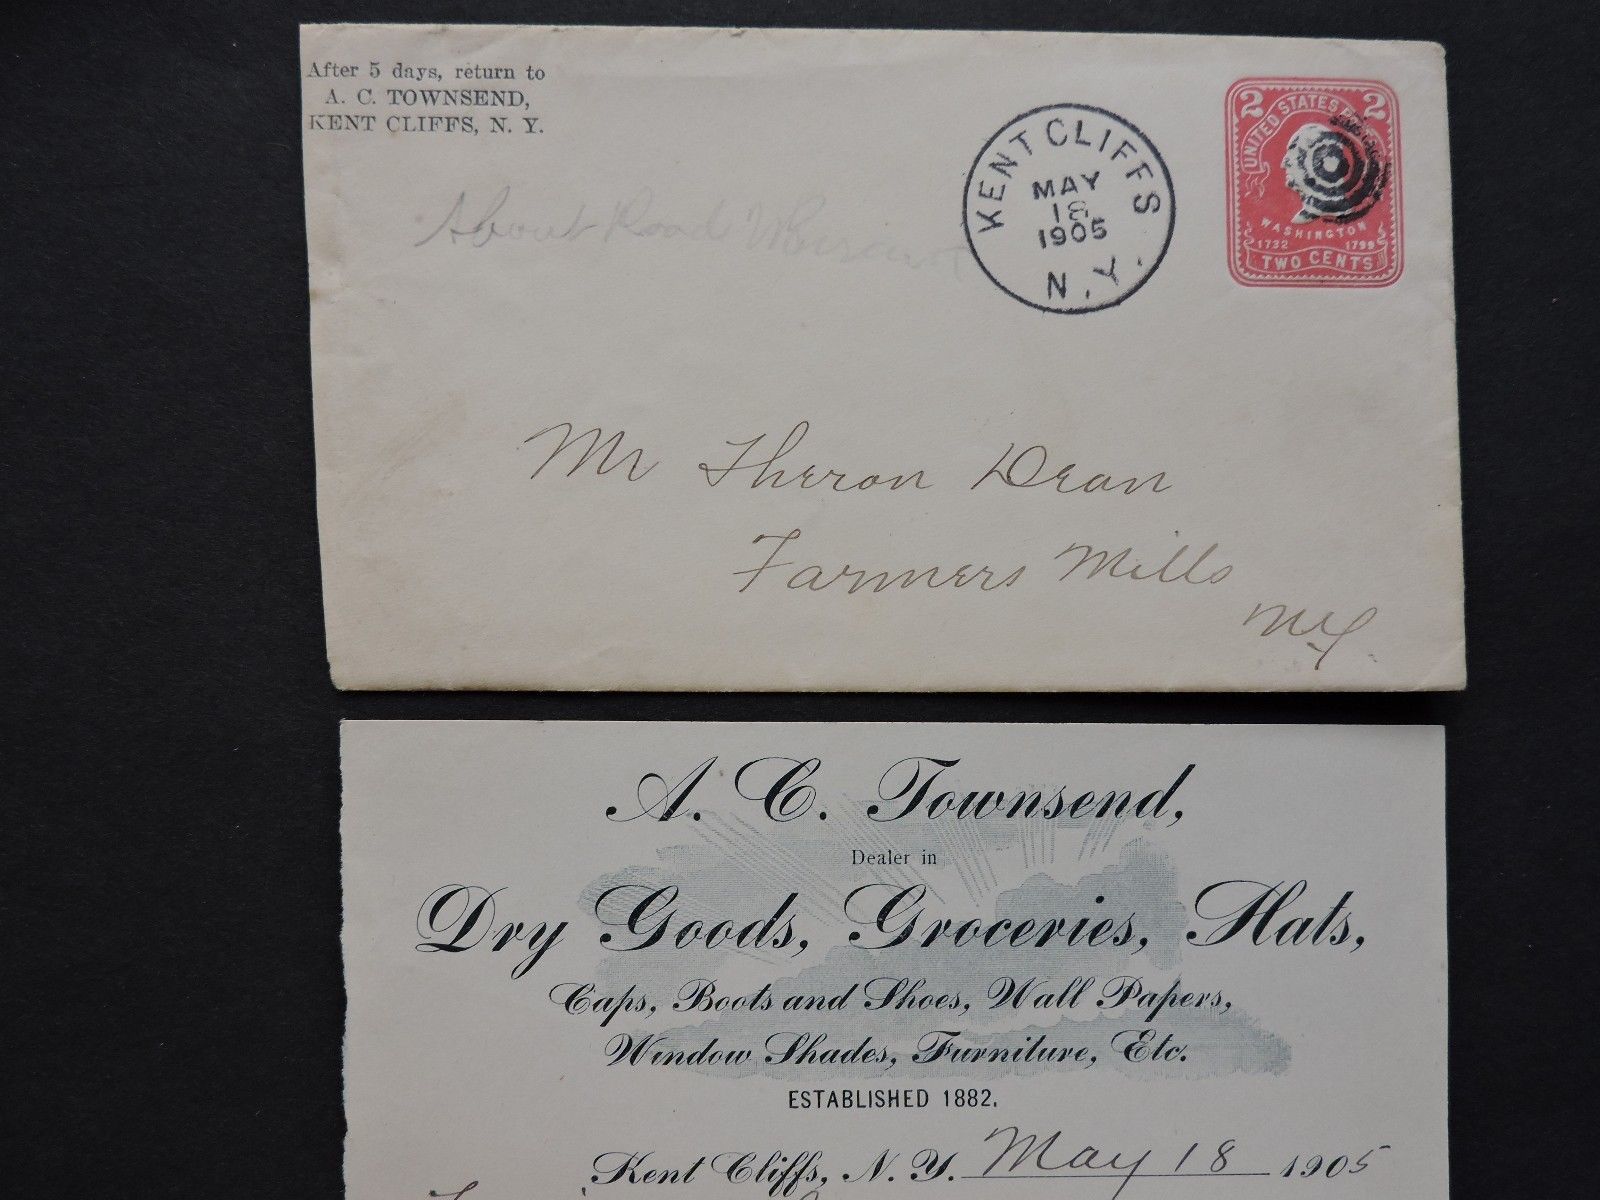 After 5 days, return to
A. C. TOWNSEND,
KENT CLIFFS, N. Y.
About Road
KENT CLIFFS
MAY
18
1905
N. Y.
2 2
UNITED STATES
WASHINGTON
1732 1799
TWO CENTS
Mr Theron Dean
Farmers Mills
NY
A. C. Townsend,
Dealer in
Dry Goods, Groceries, Hats,
Caps, Boots and Shoes, Wall Papers,
Window Shades, Furniture, Etc.
ESTABLISHED 1882.
Kent Cliffs, N. Y. May 18 1905